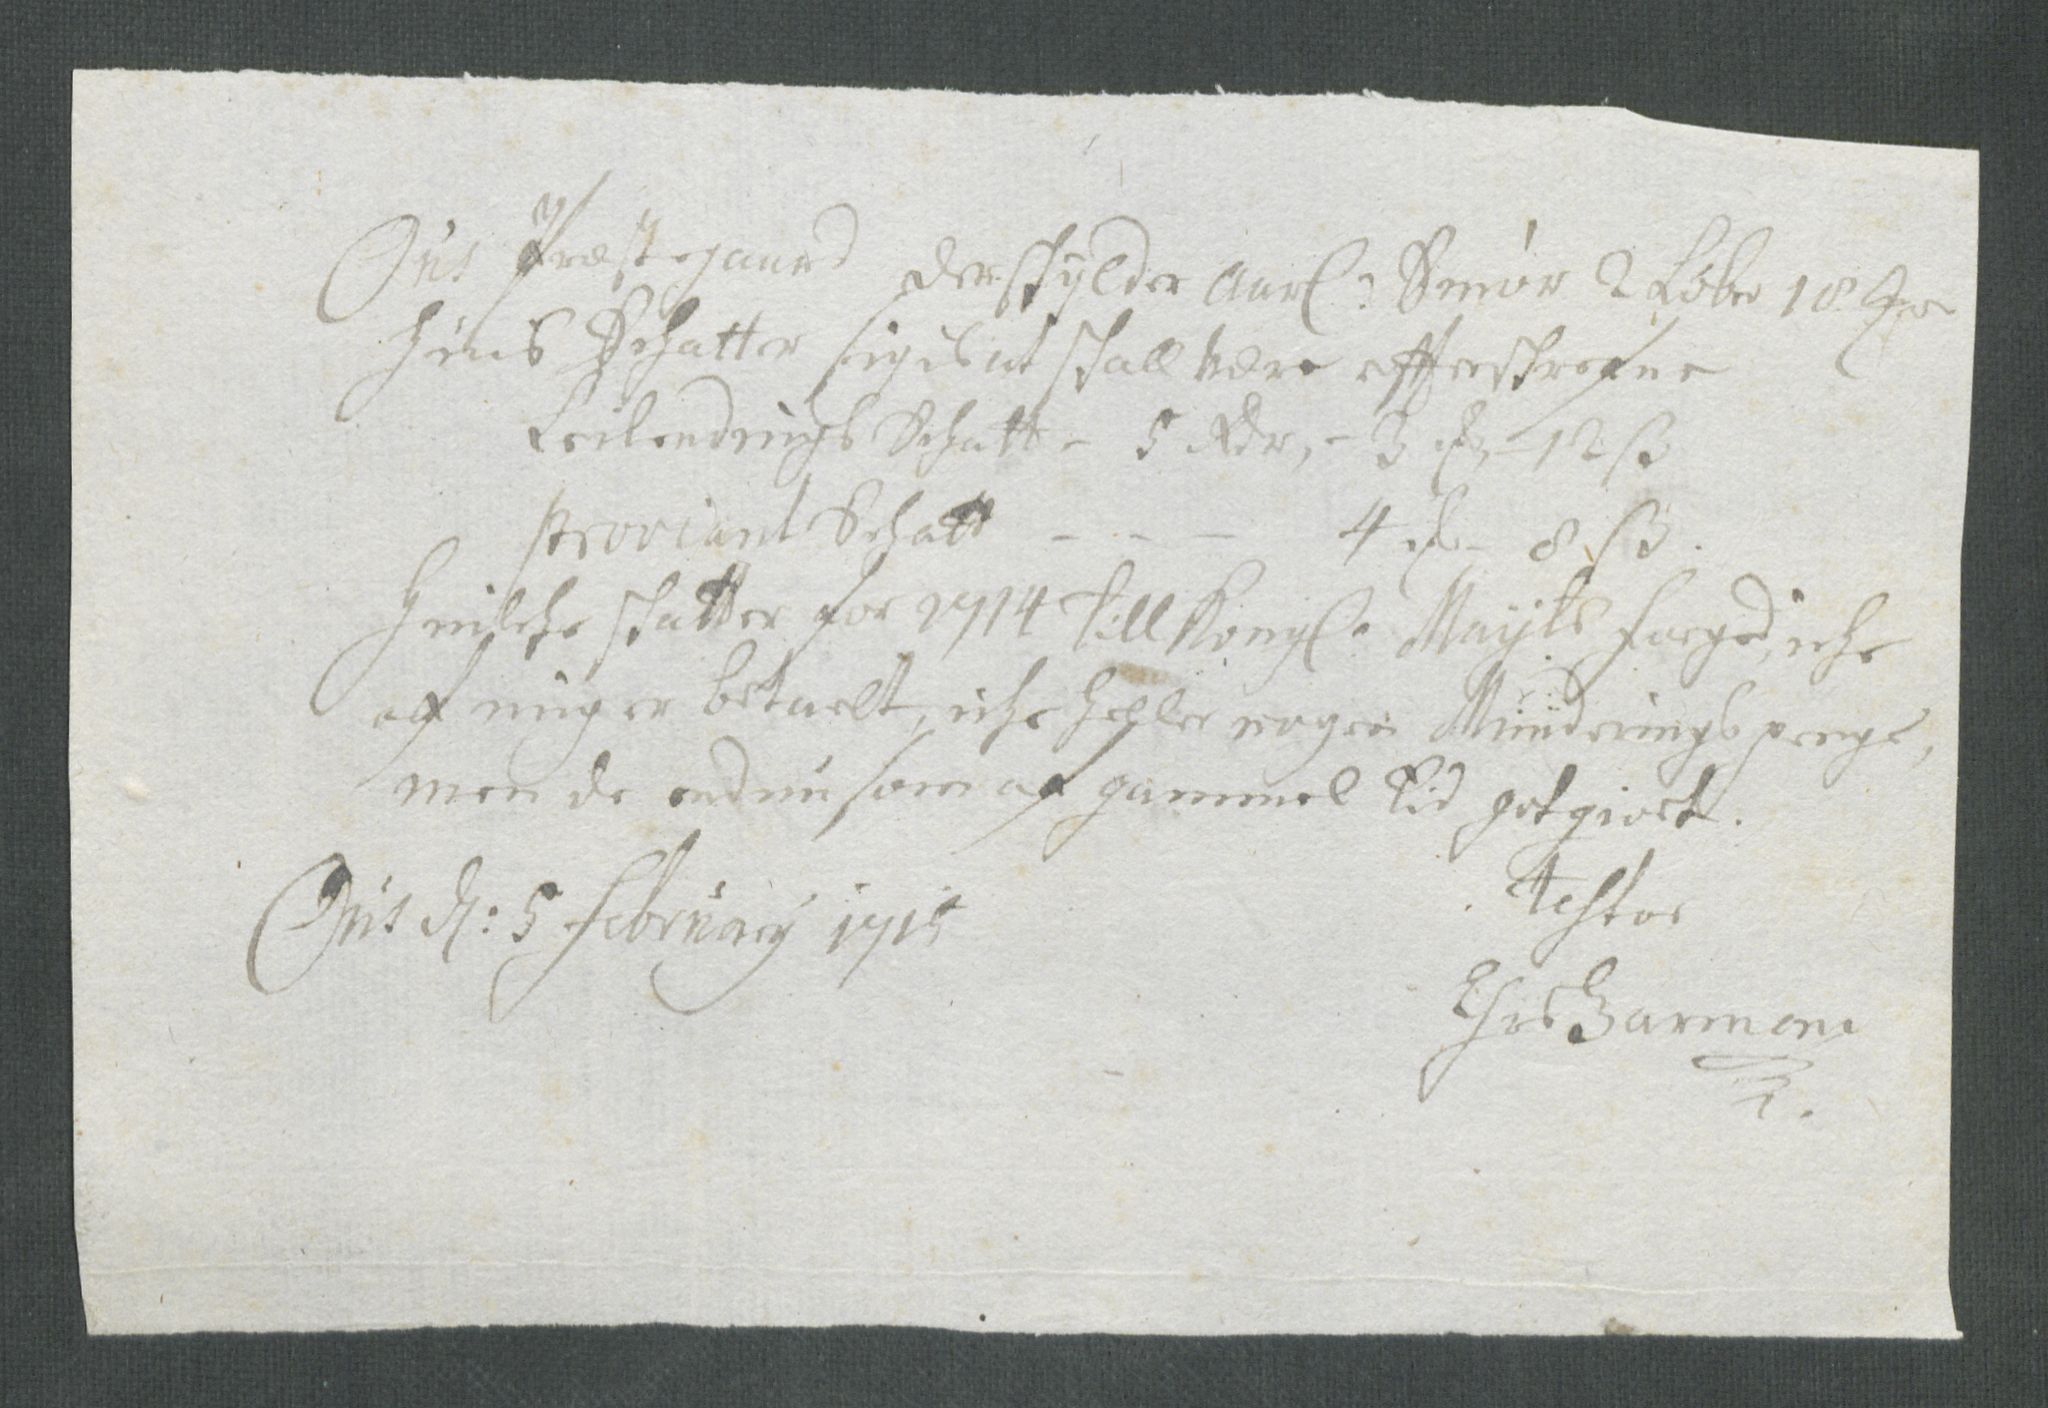 Ous Præstegaard der schylder Aarl: Smør 2 Løber 18
hues Schatter sigis at schall være effterschrefne
Leilendings Schatt - 5 Rdr, - 3 - 12 ß
proviant Schatt - - - 4 - 8 ß.
huilche schatter for 1714 till Kongl: Mayts foeged iche
af mig er betaelt, iche heller nogen Munderings penge,
men de endnu som af gammel Tid
Ous d: 5 February 1715
Testor
Chrs Barmann